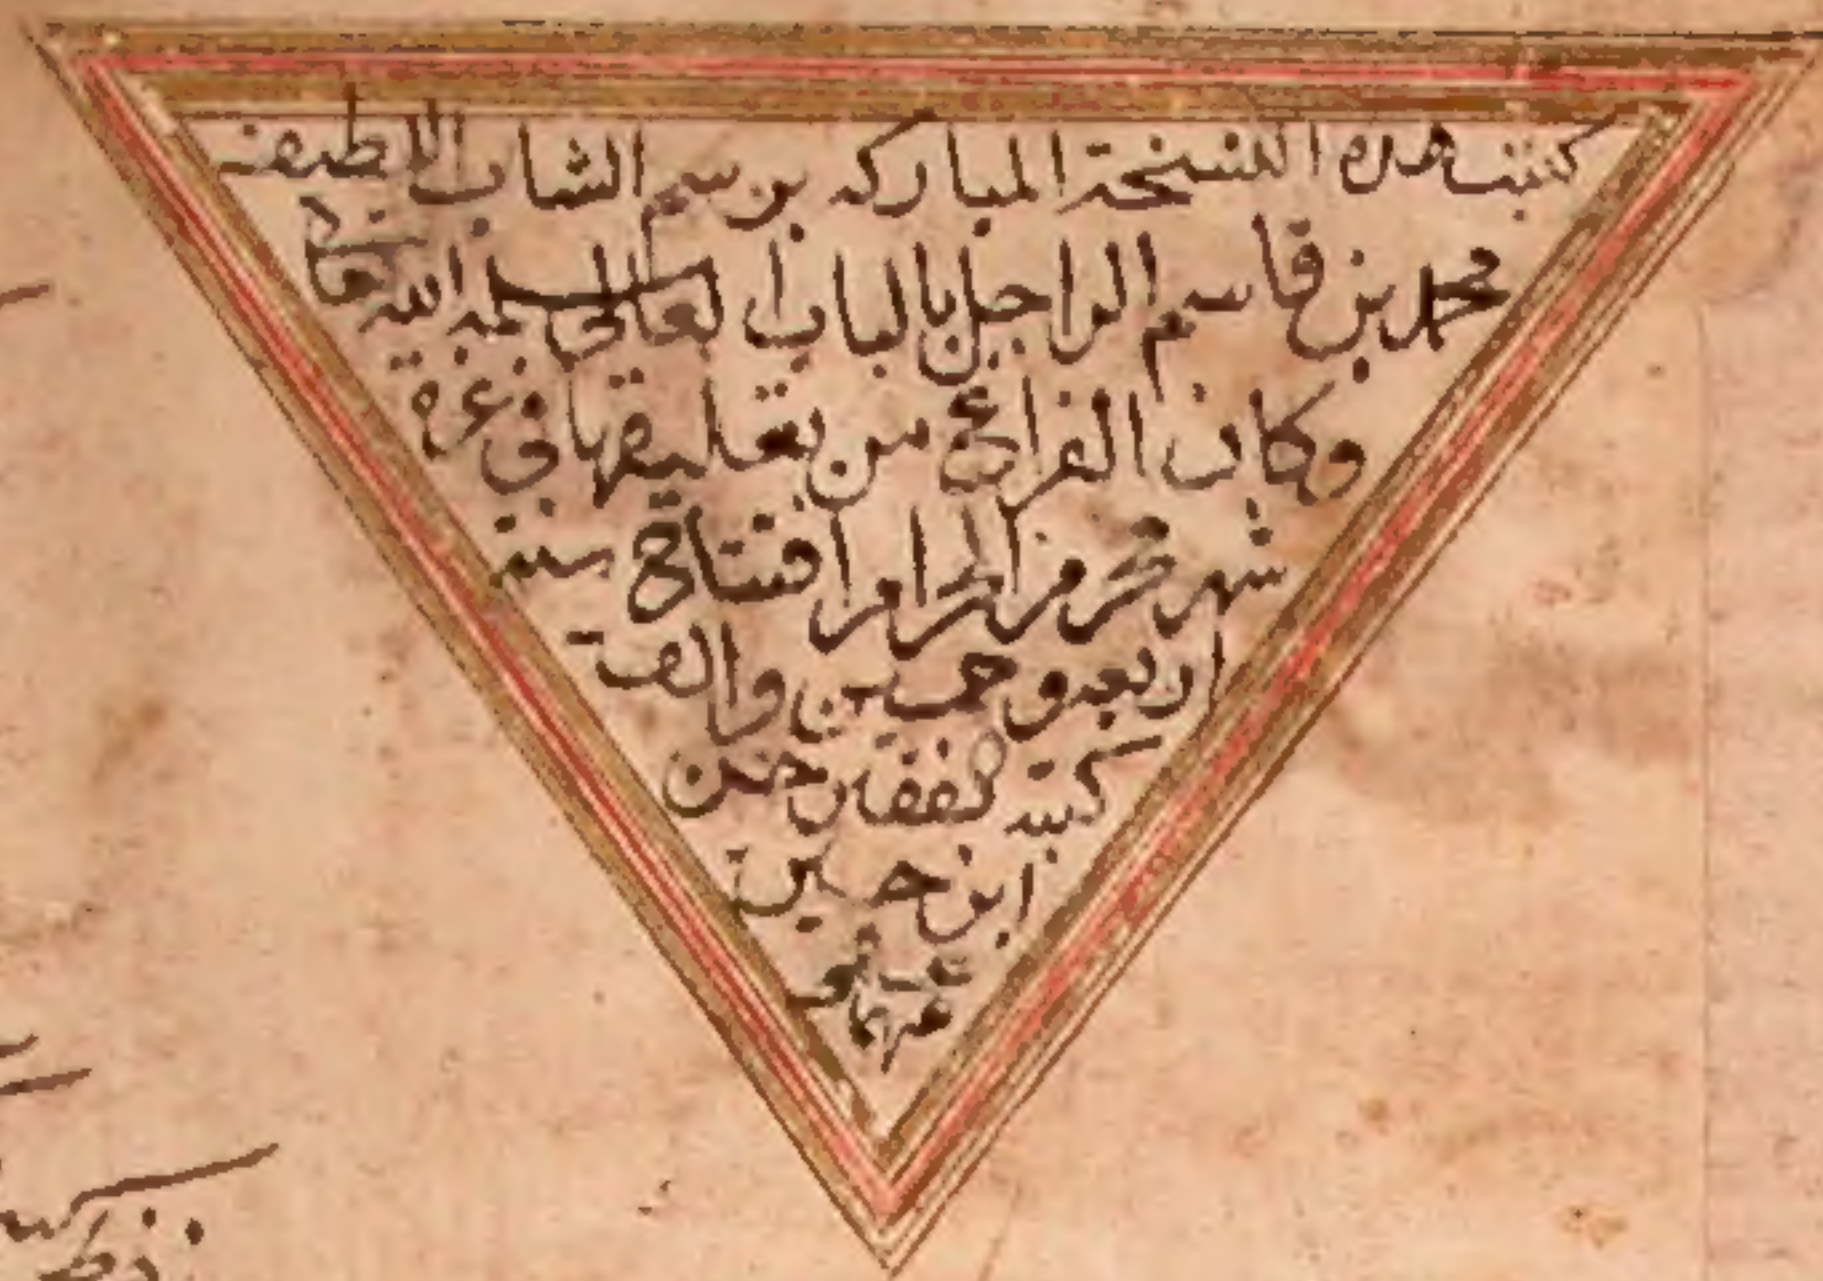 كتبت هذه النسخة المباركه برسم الشاب اللطيف
محمد بن قاسم الراجل بالباب العالي سلمه الله تعالى
وكان الفراغ من تعليقها في غرة
شهر محرم الحرام افتتاح سنة
اربعه وخمسين والف
كتبه الفقير حسن
ابن حسين
عفى
عنهما